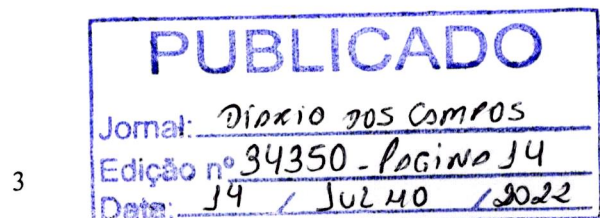 PUBLICADO
Jornal: DIÁRIO DOS CAMPOS
Edição nº 34350 - PAGINA 14
3
Data: 14 / JULHO / 2022